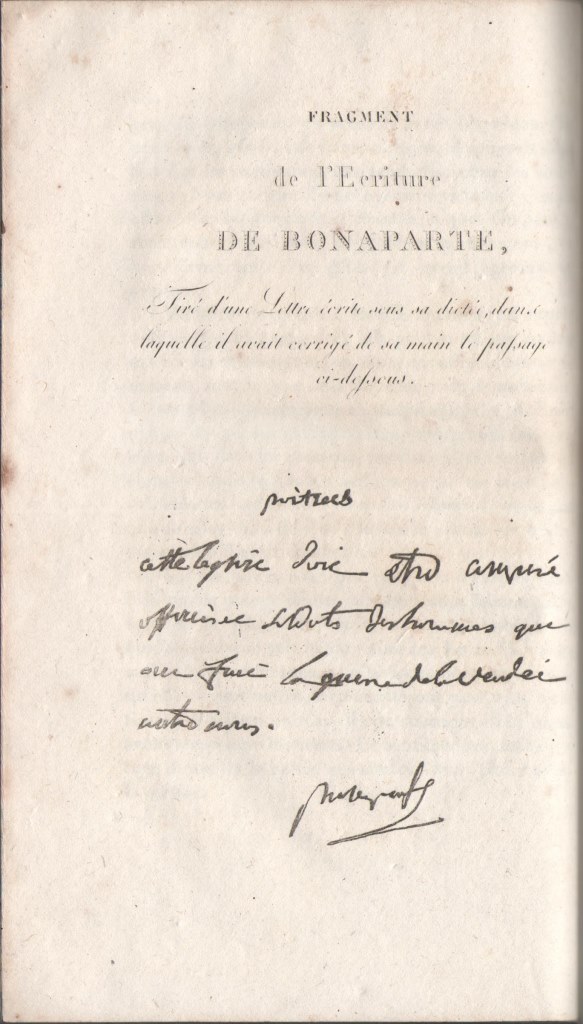 FRAGMENT
de l'Ecriture
DE BONAPARTE,
Tiré d'une Lettre écrite sous sa dictée, dans
laquelle il avait corrigé de sa main le passage
ci-dessous.
cette legion doit etre
officiers soldats des hommes que
on fait la guerre de la Vendée
contre nous.